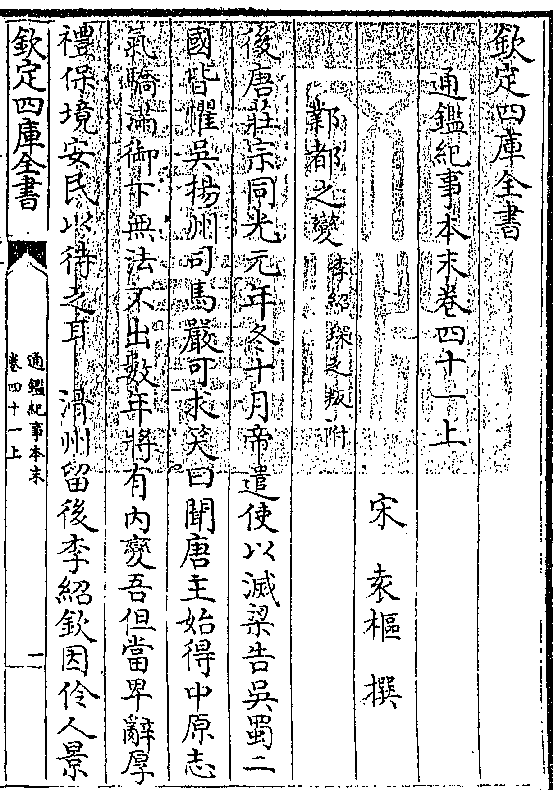 欽定四庫全書
通鑑紀事本末卷四十一上
宋 袁樞 撰
鄴都之變 李紹琛之叛附
後唐莊宗同光元年冬十月帝遣使以滅梁告吳蜀二
國皆懼吳揚州司馬嚴可求笑曰聞唐主始得中原志
氣驕滿御下無法不出數年將有內變吾但當卑辭厚
禮保境安民以待之耳 滑州留後李紹欽因伶人景
欽定四庫全書
通鑑紀事本末
卷四十一上
一